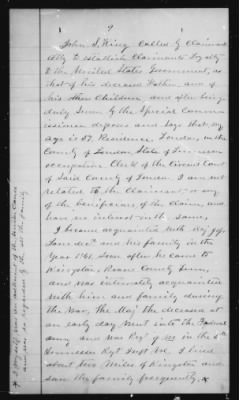 9
John S. King called by Claimant
Atty to establish Claimants loyalty
to the United States Government, as
that of his deceased Father, and of
his Children, and after being
duly Sworn by the Special Comm
issioner deposes and says that my
age is 57. Residence Loudon, in the
County of Loudon, State of Tennessee
occupation Clerk of the Circuit Court
of Said County of Loudon. I am not
related to the Claimant, or any
of the beneficiaries of the Claim, and
have no interest in the same,
I became acquainted with Maj
and his family in the
Year 1861. Soon after he came to
Kingston, Roane County Tenn,
and was intimately acquainted
with him and family during
the War, the Maj the deceased at
an early day went into the Federal
army and was in the 5th
Tennessee Regt Inft Vol. I lived
about two Miles of Kingston and
saw the family frequently. x
x Myself was an adherent of the Union Cause
and was so regarded by the all the Family